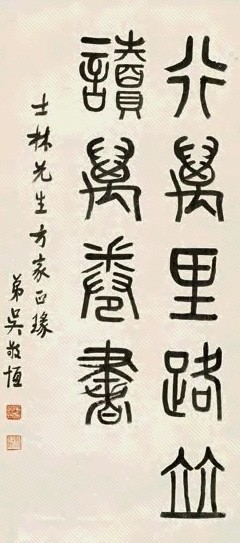 行萬里路竝
讀萬卷書
士林先生方家正瑑
弟吳敬恆